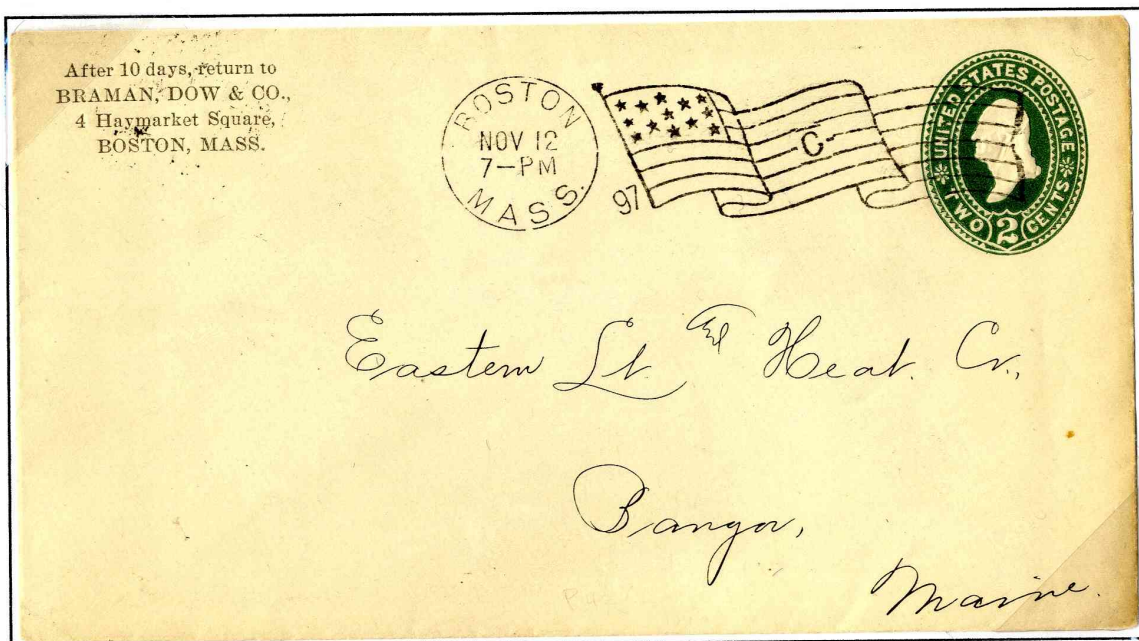 After 10 days, return to
BRAMAN, DOW & CO.,
4 Haymarket Square,
BOSTON, MASS.
BOSTON
NOV 12
7-PM
MASS.
97
C
UNITED STATES POSTAGE
TWO 2 CENTS
Eastern Lt. and Heat. Co.,
Bangor,
Maine.